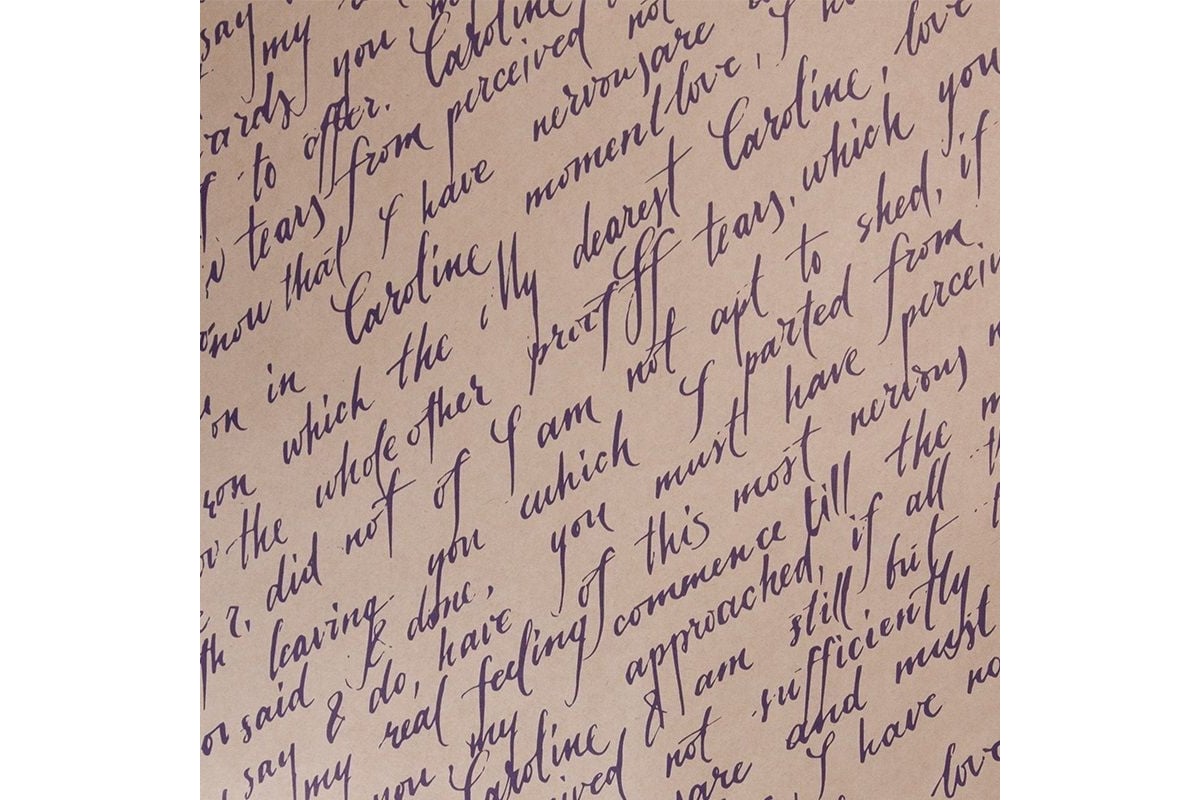 say my
ards you, m
to offer. Caroline
tears from perceived not
know that I have nervous are
on in Caroline moment love, I ha
son which the My dearest Caroline, love
the whole other proof of tears, which you
r, did not of I am not apt to shed, if
th leaving you which I parted from
or said & done, you must have perceiv
say & do, have of this most nervous n
my real feeling commence till the m
you, my approached, if all th
Caroline & am still but t
ived not sufficiently
are and must
I have no
love